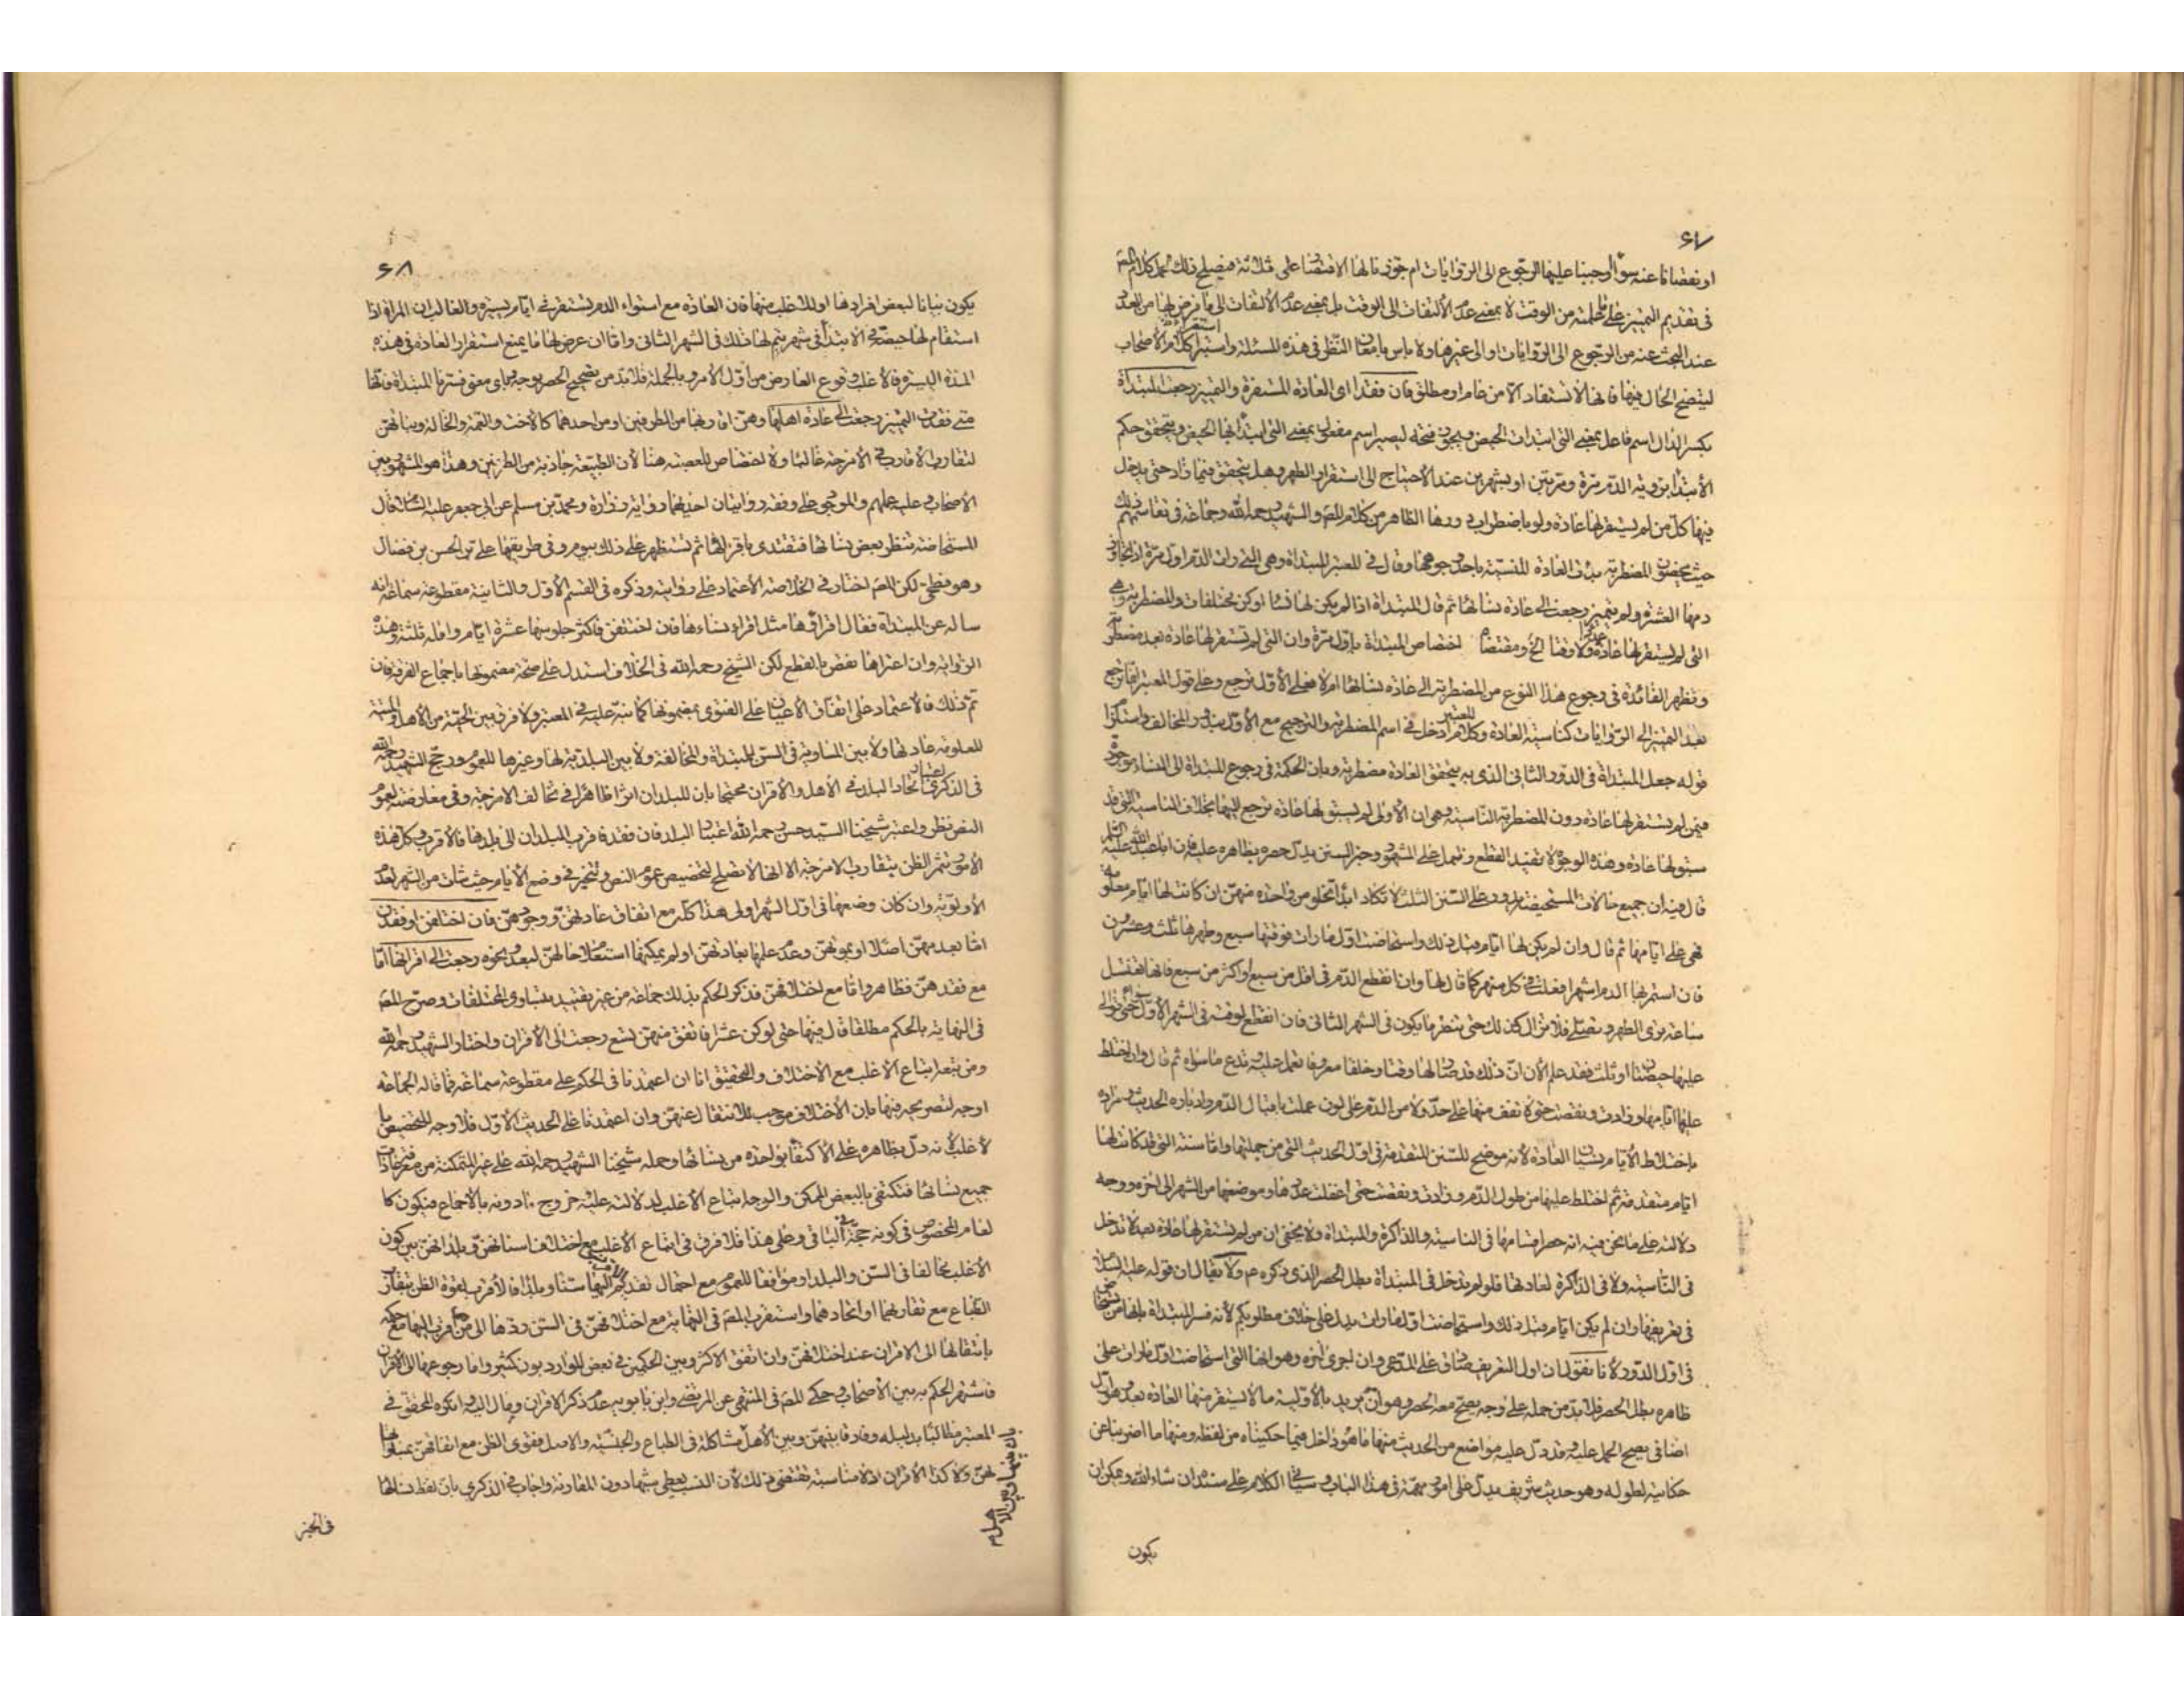 ٦٧
او نقصانا عنه سوآء اوجبنا عليها الرجوع الى الروايات ام جوزنا لها الاقتصار على ثلاثة فيصلح ذلك
فى تقديم التمييز على ما علمته من الوقت لا بمعنى عدم الالتفات الى الوقت بل بمعنى عدم الالتفات الى ما فرض لها من العدد
عند البحث عنه من الرجوع الى الروايات او الى غيرها ولا باس بامعان النظر فى هذه المسئلة واستقراء كلام الاصحاب
ليتضح الحال فيها فانها لا تستفاد الا من خام او مطلق فان فقدا اى العادة المستقرة والتمييز رجعت المبتداة
بكسر الدال اسم فاعل بمعنى التى ابتدات الحيض ويجوز فتحه ليصير اسم مفعول بمعنى التى ابتدأ بها الحيض ويتحقق حكم
الابتدا برؤية الدم مرة ومرتين او بشهرين عند الاحتياج الى استقرار الطهر وهل يتحقق فيما زاد حتى يدخل
فيها كل من لم يستقر لها عادة ولو باضطراب دورها الظاهر من كلام المصنف والشهيد رحمه الله وجماعة فى تقاسيمهم ذلك
حيث يخصون المضطربة بذات العادة المنسية باحد وجوهها وقال فى المعتبر المبتداة وهى التى رات الدم اول مرة اذا تجاوز
دمها العشرة ولم يتميز رجعت الى عادة نسائها ثم قال المبتداة اذا لم يكن لها نسآء او كن مختلفات والمضطربة وهى
التى لم يستقر لها عادة عددا ولا وقتا الخ ومقتضاه اختصاص المبتداة باول مرة وان التى لم تستقر لها عادة بعد مضطربة
وتظهر الفائدة فى رجوع هذا النوع من المضطربة الى عادة نسائها ام لا فعلى الاول ترجع وعلى قول المعتبر انما ترجع
بعد التمييز الى الروايات كناسية العادة وكلام المعتبر ادخل فى اسم المضطربة والترجيح مع الاول
قوله جعل المبتداة فى الدور الثانى الذى به يتحقق العادة مضطربة وبان الحكمة فى رجوع المبتداة الى النساء موجودة
فيمن لم يستقر لها عادة دون المضطربة الناسية وهى ان الاولى لم يسبق لها عادة ترجع اليها بخلاف الناسية التى قد
سبق لها عادة وهذه الوجوه لا تفيد القطع وتحمل على المشهور وخبر السنن يدل حصره بظاهره عليه فان ابا عبد الله عليه السلام
قال فيه ان جميع حالات المستحيضة تدور على السنن الثلث لا تكاد ابدا تخلو من واحدة منهن ان كانت لها ايام معلومة
فهى على ايامها ثم قال وان لم يكن لها ايام قبل ذلك واستحاضت اول ما رات فوقتها سبع وطهرها ثلث وعشرون
فان استمر بها الدم اشهرا فعلت فى كل شهر كما قال لها وان انقطع الدم فى اقل من سبع او اكثر من سبع فانها تغتسل
ساعة ترى الطهر وتصلى فلا تزال كذلك حتى تنظر ما يكون فى الشهر الثانى فان انقطع لوقته فى الشهر الاول حتى توالى
عليها حيضتان او ثلث فقد علم الآن ان ذلك قد صار لها وقتا وخلقا معروفا تعمل عليه وتدع ما سواه ثم قال وان اختلط
عليها ايامها وزادت ونقصت حتى لا تقف منها على حد ولا من الدم على لون عملت باقبال الدم وادباره الحديث ومراده
باختلاط الايام نسيان العادة لانه موضح للسنن المتقدمة فى اول الحديث التى من جملتها واما سنة التى قد كانت لها
ايام متقدمة ثم اختلط عليها من طول الدم وزادت ونقصت حتى اغفلت عددها وموضعها من الشهر الى اخره ووجه
دلالته على ما نحن فيه انه حصر اقسامها فى الناسية والذاكرة والمبتداة ولا يخفى ان من لم تستقر لها عادة بعد لا تدخل
فى الناسية ولا فى الذاكرة لعادتها فلو لم يدخل فى المبتداة بطل الحصر الذى ذكره ع ولا يقال ان قوله عليه السلم
فى تعريفها وان لم يكن ايام قبل ذلك واستحاضت اول ما رات يدل على خلاف مطلوبكم لانه فسر المبتداة بانها من
فى اول الدور لانا نقول ان اول التعريف صادق على المدعى وان اجرى اخره وهو انها التى استحاضت اول ما رات على
ظاهره بطل الحصر فلا بد من حمله على وجه يصح معه الحصر وهو ان يريد بالاولية ما لا يستقر منها العادة بعد
اضافى يصح الحمل عليه وقد دل عليه مواضع من الحديث منها ما هو داخل فيما حكيناه من لفظه ومنها ما اضربنا عن
حكايته لطوله وهو حديث شريف يدل على امور مهمة فى هذا الباب وسياتى الكلام على سنده ان شاء الله ويمكن ان
يكون
٦٨
يكون بيانا لبعض افرادها او للاغلب منها فان العادة مع استواء الدم تستقر فى ايام يسيرة والغالب ان المراة اذا
استقام لها حيض فى الابتدآء فى شهر يتم لها ذلك فى الشهر الثانى واما ان عرض لها ما يمنع استقرار العادة فى هذه
المدة اليسيرة فالاغلب وقوع العارض من اول الامر وبالجملة فلا بد من تصحيح الحصر بوجه وباى معنى فسرنا المبتداة فانها
متى فقدت التمييز رجعت الى عادة اهلها وهن اقاربها من الطرفين او من احدهما كالاخت والعمة والخالة وبناتهن
لتقارب الاقارب فى الامزجة غالبا ولا اختصاص للعصبة هنا لان الطبيعة جاذبة من الطرفين وهذا هو المشهور بين
الاصحاب وعليه عملهم والموجود على وفقه روايتان احديهما رواية زرارة ومحمد بن مسلم عن ابى جعفر عليه السلام قال
المستحاضة تنظر بعض نسائها فتقتدى باقرائها ثم تستظهر على ذلك بيوم وفى طريقها على بن الحسن بن فضال
وهو فطحى لكن المصنف اختار فى الخلاصة الاعتماد على روايته وذكره فى القسم الاول والثانية مقطوعة سماعة انه
ساله عن المبتداة فقال اقراؤها مثل اقراء نساءها فان اختلفن فاكثر جلوسها عشرة ايام واقله ثلثة وهذه
الرواية وان اعتراها نقص بالقطع لكن الشيخ رحمه الله فى الخلاف استدل على صحة مضمونها باجماع الفرقة فان
تم ذلك فالاعتماد على اتفاق الاعيان على الفتوى بمضمونها كما نبه عليه فى المعتبر ولا فرق بين الحية من الاهل والميتة
المعلومة عادتها ولا بين المساوية فى السن للمبتداة والمخالفة ولا بين البلدية لها وغيرها للعموم ورجح الشهيد رحمه الله
فى الذكرى اعتبار اتحاد البلد فى الاهل والاقران محتجا بان للبلدان اثرا ظاهرا فى تخالف الامزجة وفى معارضته لعموم
النص نظر واعتبر شيخنا السيد حسن رحمه الله اغلبا البلد فان فقد فاقرب البلدان الى بلدها فالاقرب وكل هذه
الامور تثمر الظن بتقارب الامزجة الا انها لا تصلح لتخصيص عموم النص وتتخير فى وضع الايام حيث شاءت من الشهر لعدم
الاولوية وان كان وضعها فى اول الشهر اولى هذا كله مع اتفاق عادتهن ووجودهن فان اختلفن او فقدن
اما بعدمهن اصلا او بموتهن وعدم علمها بعادتهن او لم يمكنها استعلام حالهن لبعد ونحوه رجعت الى اقرانها اما
مع فقدهن فظاهر واما مع اختلافهن فذكر الحكم بذلك جماعة من غير تقييد بتساوى المختلفات وصرح المصنف
فى النهاية بالحكم مطلقا قال فيها حتى لو كن عشرا فاتفق منهن تسع رجعت الى الاقران واختار الشهيد رحمه الله
ومن تبعه اتباع الاغلب مع الاختلاف والتحقيق انا ان اعتمدنا فى الحكم على مقطوعة سماعة فما قاله الجماعة
اوجه لتصريحه فيها بان الاختلاف موجب للانتقال عنهن وان اعتمدنا على الحديث الاول فلا وجه للتخصيص با
لاغلب لانه دل بظاهره على الاكتفآء بواحدة من نسائها وحمله شيخنا الشهيد رحمه الله على غير المتمكنة من معرفة عادات
جميع نسائها فتكتفى بالبعض الممكن والوجه اتباع الاغلب لدلالته عليه خروج مادونه بالاجماع فيكون كا
لعام المخصوص فى كونه حجة فى الباقى وعلى هذا فلا فرق فى اتباع الاغلب مع اختلاف اسنانهن وبلدانهن بين كون
الاغلب مخالفا فى السن والبلد او موافقا للعموم مع احتمال تقديم الاقرب اليها سنا وبلدا فالاقرب لقوة الظن بتقارب
الطباع مع تقاربهما او اتحادهما واستقرب المصنف فى النهاية مع اختلافهن فى السن ردها الى من هو اقرب اليها مع حكمه
بانتقالها الى الاقران عند اختلافهن وان اتفق الاكثر وبين الحكمين فى بعض الموارد بون كثير واما رجوعها الى الاقران
فاشتهر الحكم به بين الاصحاب وحكى المصنف فى المنتهى عن المرتضى وابن بابويه عدم ذكر الاقران ومال اليه وانكره المحقق فى
المعتبر مطالبا بدليله وفارقا بينهن وبين الاهل بمشاكلة فى الطباع والجنسية والاصل فقوى الظن مع اتفاقهن بمساواتها
لهن ولا كذا الاقران اذ لا مناسبة تقتضى ذلك لان النسب يعطى شبها دون المقارنة واجاب فى الذكرى بان لفظ نسائها
فى الخبر